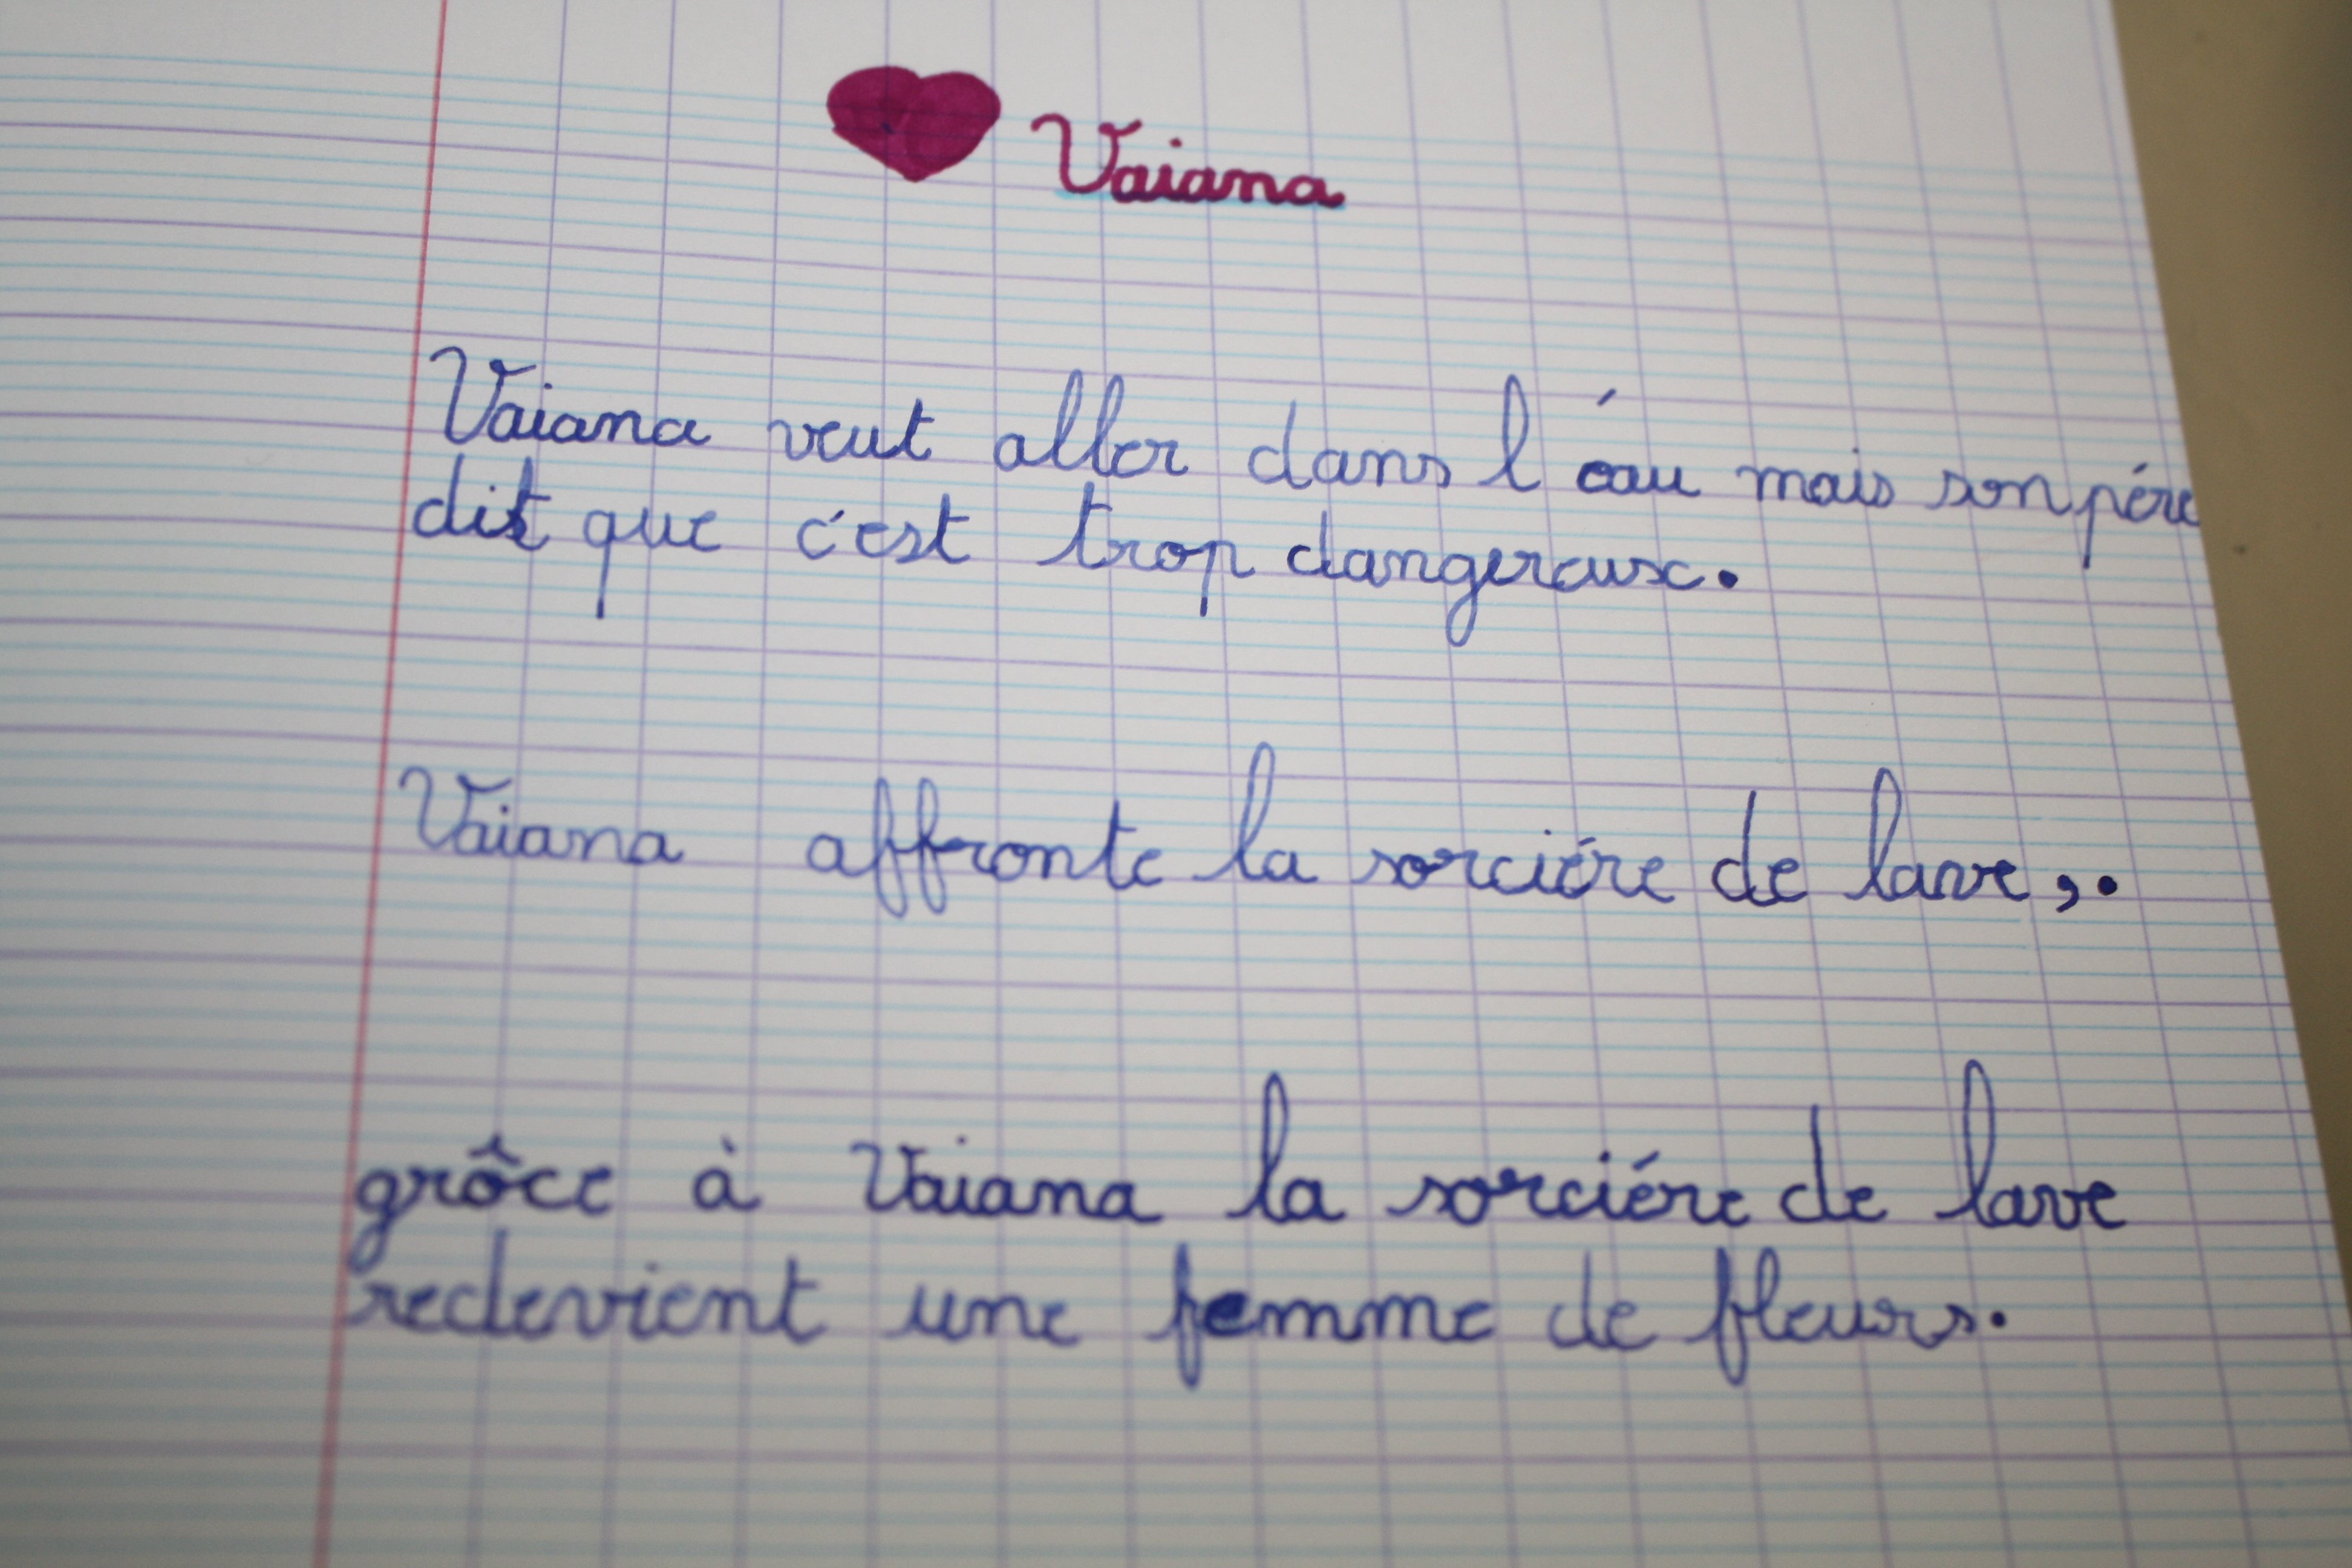 Vaiana
Vaiana veut aller dans l'eau mais son pére
dit que c'est trop dangereux.
Vaiana affronte la sorciére de lave,.
grôce à Vaiana la sorciére de lave
redevient une femme de fleurs.